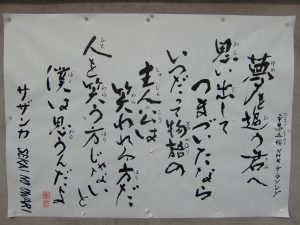 平昌五輪NHKテーマソング
夢を追う君へ
思い出して
つまづいたなら
いつだって物語の
主人公は
笑われる方だ
人を笑う方じゃないと
僕は思うんだよ
サザンカ SEKAI NO OWARI